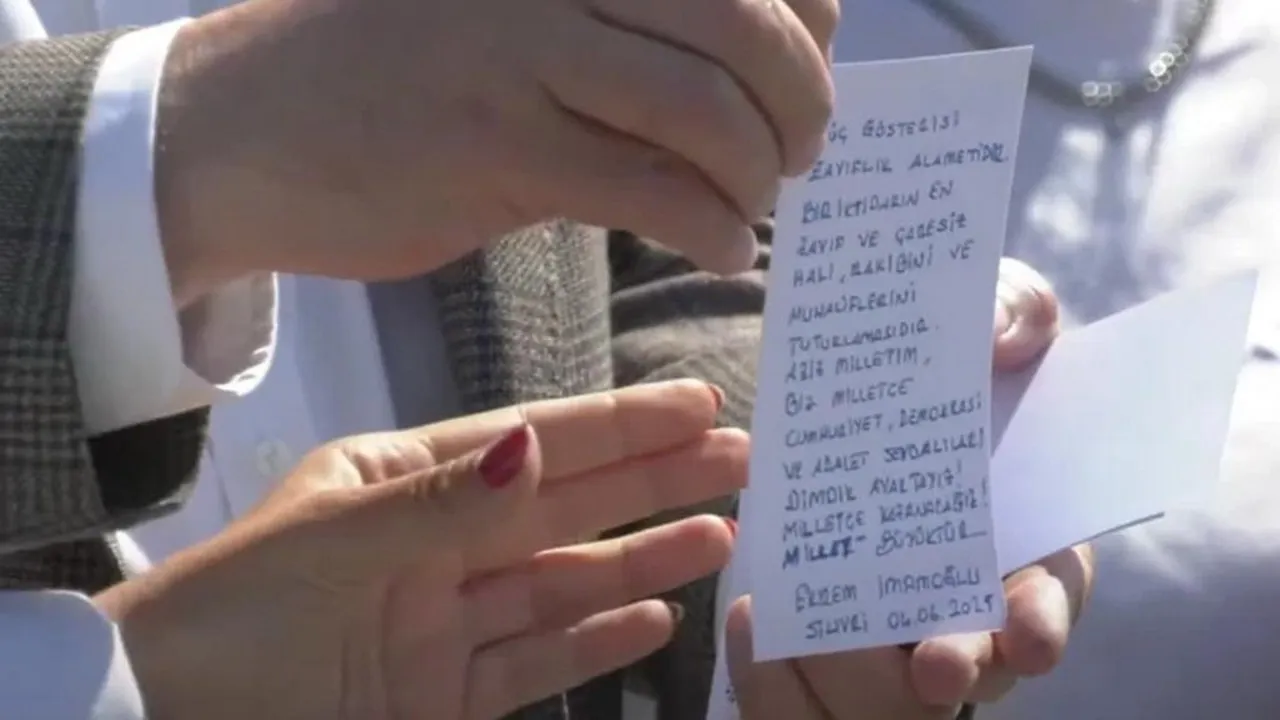 ÜÇ GÖSTERİSİ
ZAYIFLIK ALAMETİDİR.
BİR İKTİDARIN EN
ZAYIF VE ÇARESİZ
HALİ, RAKİBİNİ VE
MUHALİFLERİNİ
TUTUKLAMASIDIR.
AZİZ MİLLETİM,
BİZ MİLLETÇE
CUMHURİYET, DEMOKRASİ
VE ADALET SEVDALILARI
DİMDİK AYAKTAYIZ!
MİLLETÇE KAZANACAĞIZ!
MİLLET BÜYÜKTÜR
EKREM İMAMOĞLU
SİLİVRİ 04.06.2025